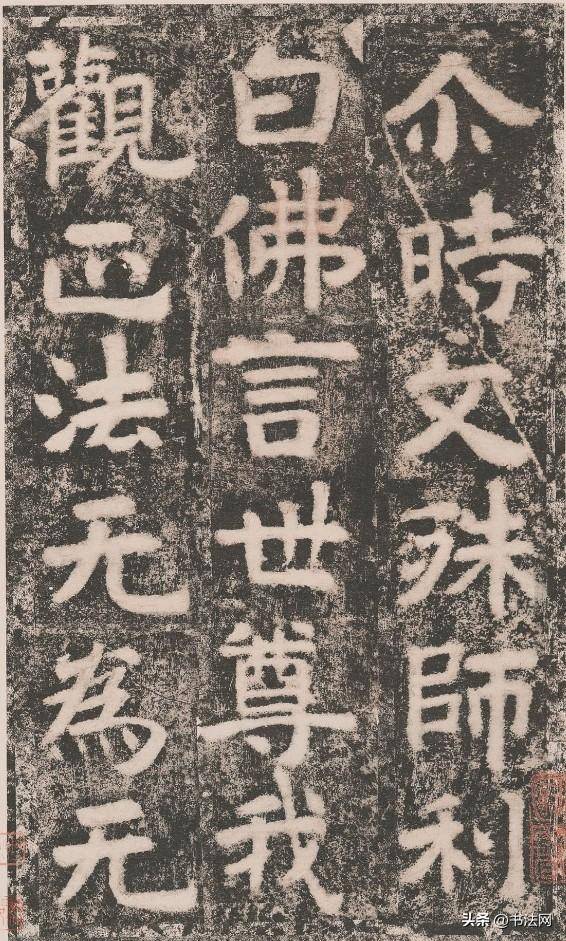 尒時文殊師利
白佛言世尊我
觀正法无為无
头条 @书法网